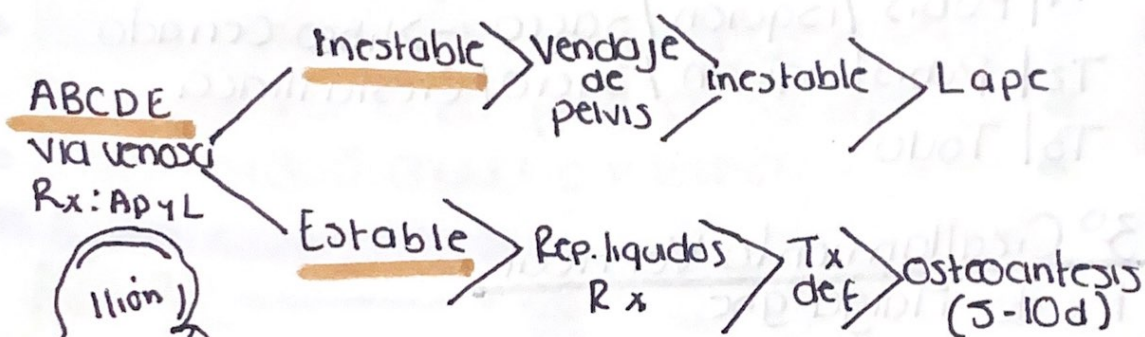 ABCDE
Via venosa
Rx: Ap y L
Inestable
Vendaje
de
pelvis
Inestable
Lape
Estable
Rep. liquidos
Rx
Tx
def
Osteocintesis
(5-10d)
Ilión